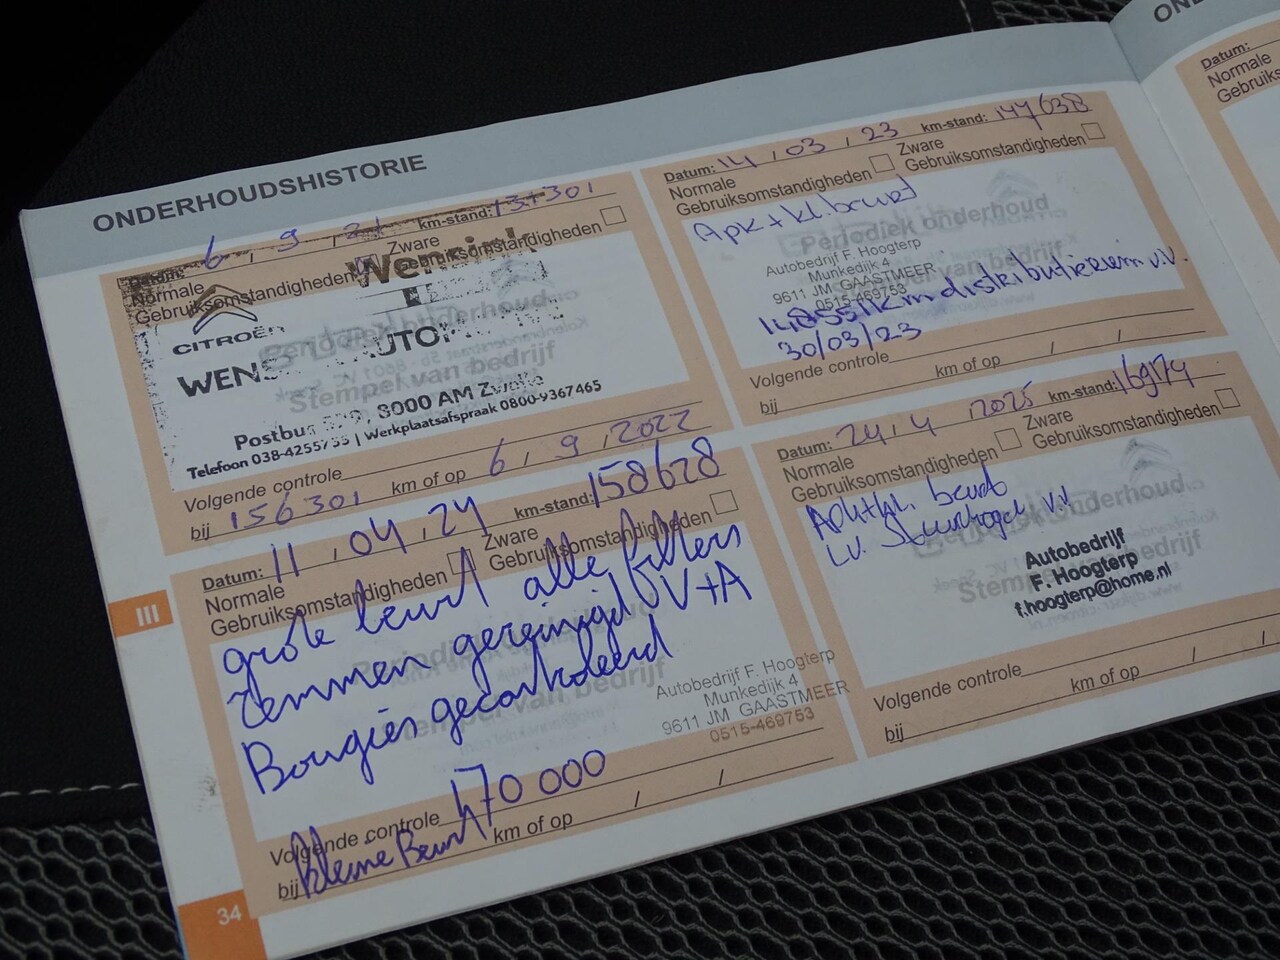 ONDERHOUDSHISTORIE
Datum: 6 , 9 , 21 km-stand:
Normale Gebruiksomstandigheden
Zware Gebruiksomstandigheden
Wensink
CITROËN
Postbus 8000 AM Zwolle
Telefoon 038-4255 | Werkplaatsafspraak 0800-9367465
Volgende controle
bij 156301 km of op 6 , 9 , 2022
Datum: 11 , 04 , 24 km-stand: 158628
Normale Gebruiksomstandigheden
Zware Gebruiksomstandigheden
grote beurt alle filters
remmen gereinigd V+A
Bougies gecontroleerd
Autobedrijf F. Hoogterp
Munkedijk 4
9611 JM GAASTMEER
0515-469753
Volgende controle 170 000
bij kleine Beurt km of op / /
III
34
Datum: 14 , 03 , 23 km-stand: 147638
Normale Gebruiksomstandigheden
Zware Gebruiksomstandigheden
Apk + kl. beurt
Periodiek onderhoud
Autobedrijf F. Hoogterp
Munkedijk 4
9611 JM GAASTMEER
0515-469753
148551km distributieriem v.v.
30/03/23
Volgende controle
bij km of op / /
Datum: 24 , 4 , 2025 km-stand: 169174
Normale Gebruiksomstandigheden
Zware Gebruiksomstandigheden
Apk+kl. beurt
L.V. Stuurkogel v.v.
Autobedrijf
F. Hoogterp
f.hoogterp@home.nl
Volgende controle
bij km of op / /
Datum:
Normale